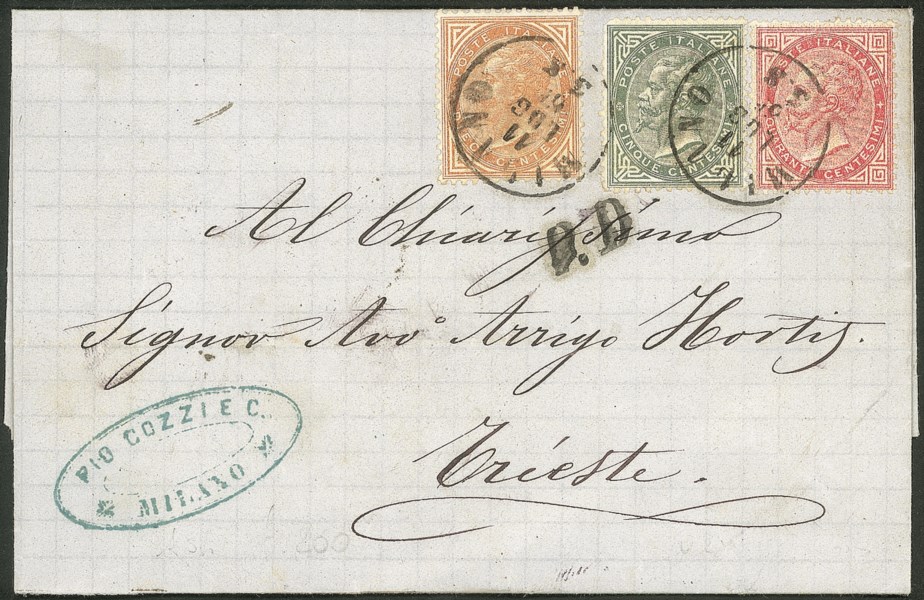 POSTE ITALIANE
DIECI CENTESIMI
POSTE ITALIANE
CINQUE CENTESIMI
POSTE ITALIANE
QUARANTA CENTESIMI
MILANO
MILANO
P.D
Al Chiarissimo
Signor Avv° Arrigo Hortis.
Trieste.
PIO COZZI E C.
MILANO